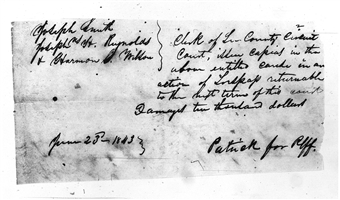 Joseph Smith
Joseph H. Reynolds
& Harmon T. Wilson
Clerk of Lee County Circuit
Court, issue capias in the
above entitled cause in an
action of Trespass returnable
to the next term of this court
Damages ten thousand dollars
June 23rd 1843
Patrick for Plff.